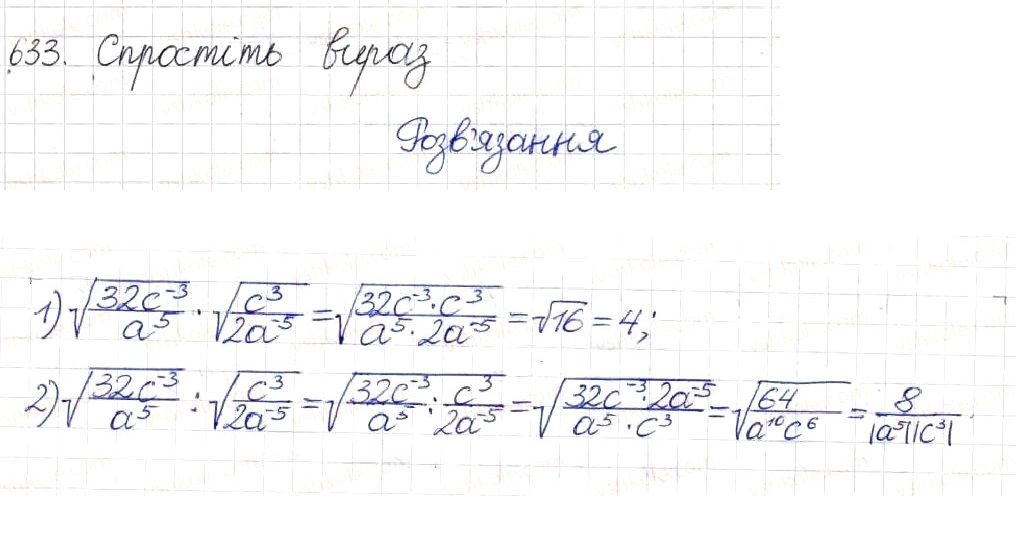 633. Спростіть вираз
Розв'язання
1) √(32c⁻³/a⁵) · √(c³/2a⁻⁵) = √(32c⁻³·c³/a⁵·2a⁻⁵) = √16 = 4;
2) √(32c⁻³/a⁵) : √(c³/2a⁻⁵) = √(32c⁻³/a⁵ : c³/2a⁻⁵) = √(32c⁻³·2a⁻⁵/a⁵·c³) = √(64/a¹⁰c⁶) = 8/|a⁵||c³|